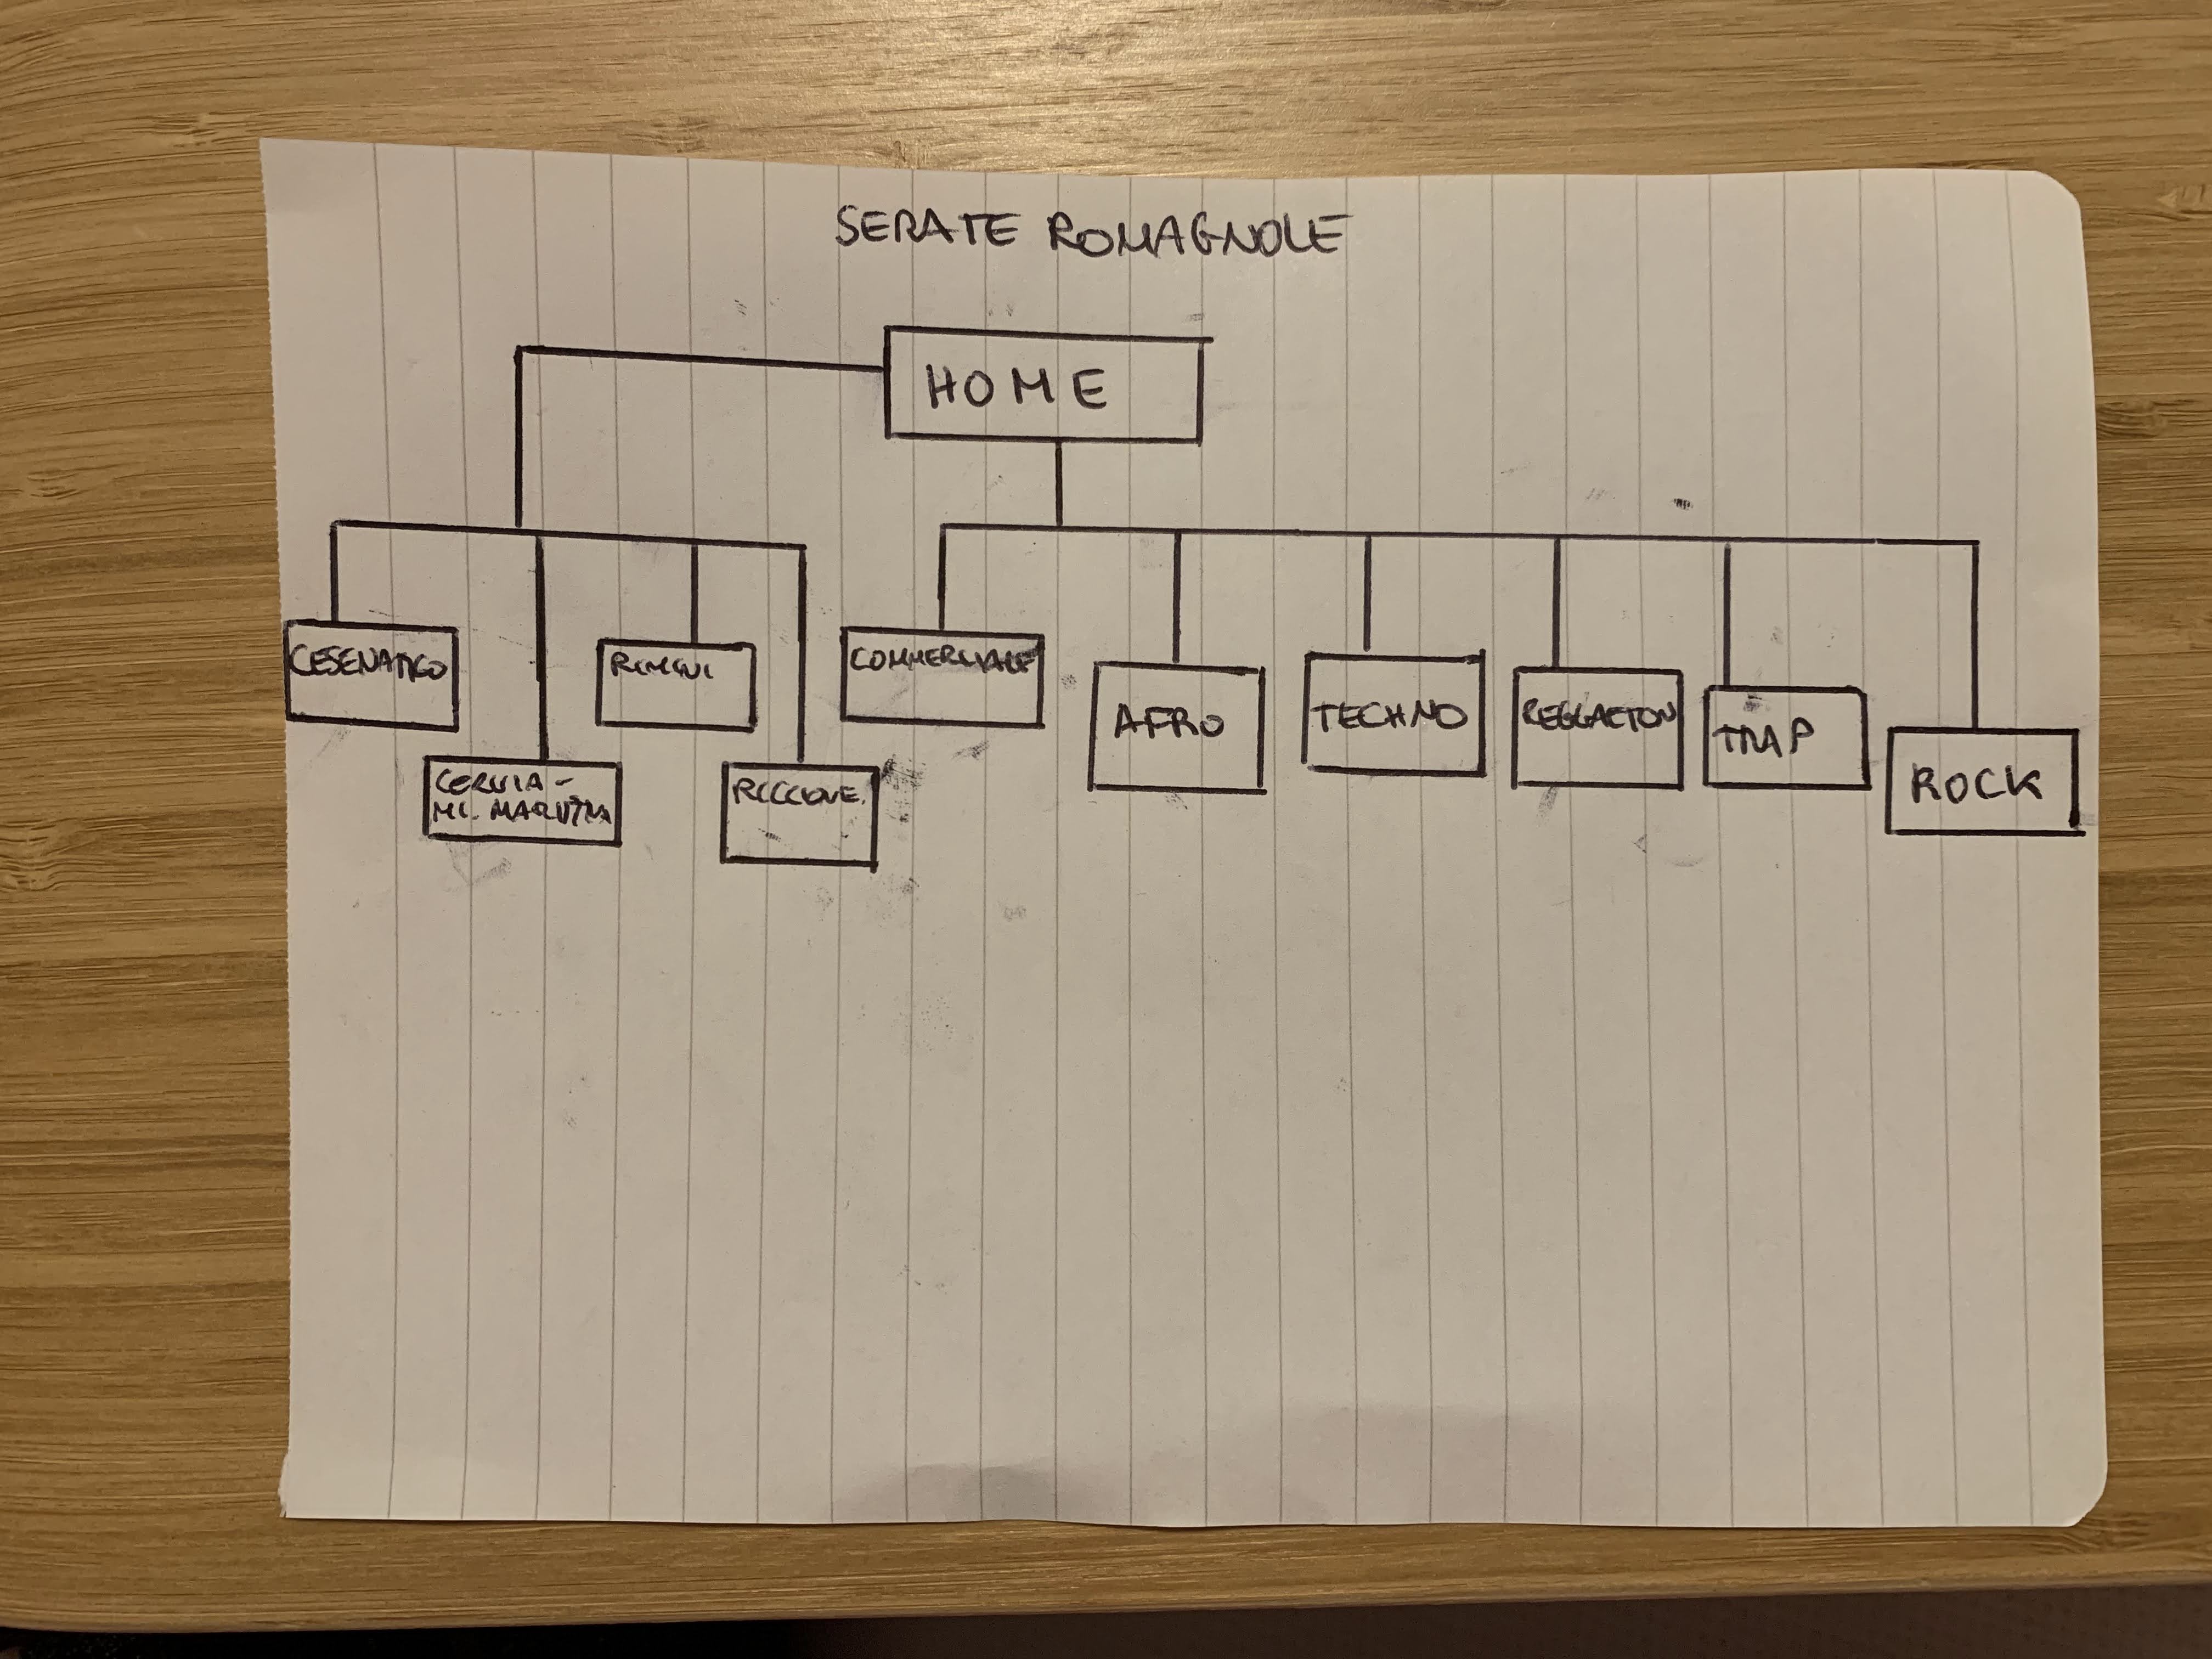 SERATE ROMAGNOLE
HOME
CESENATICO
CERVIA -
MI. MARITTIMA
RIMINI
RICCIONE
COMMERCIALE
AFRO
TECHNO
REGGAETON
TRAP
ROCK